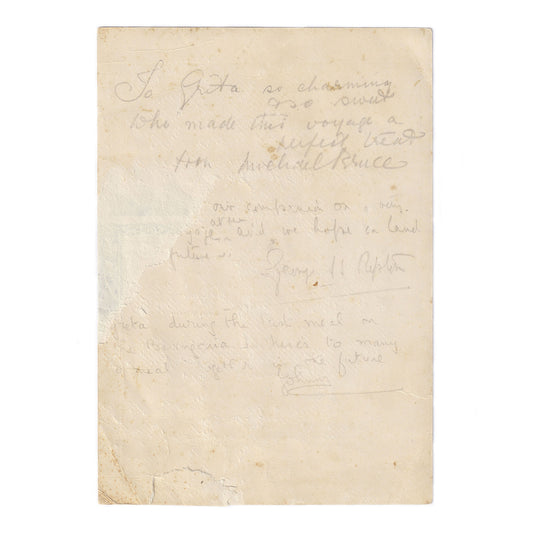 To Grita so charming
& so sweet
Who made this voyage a
perfect treat
from Michael Bruce
our companion on a very
and we hope on land
future
George Ripton
during the last meal on
the Berengaria & here's to many
meal in the future
Johnny